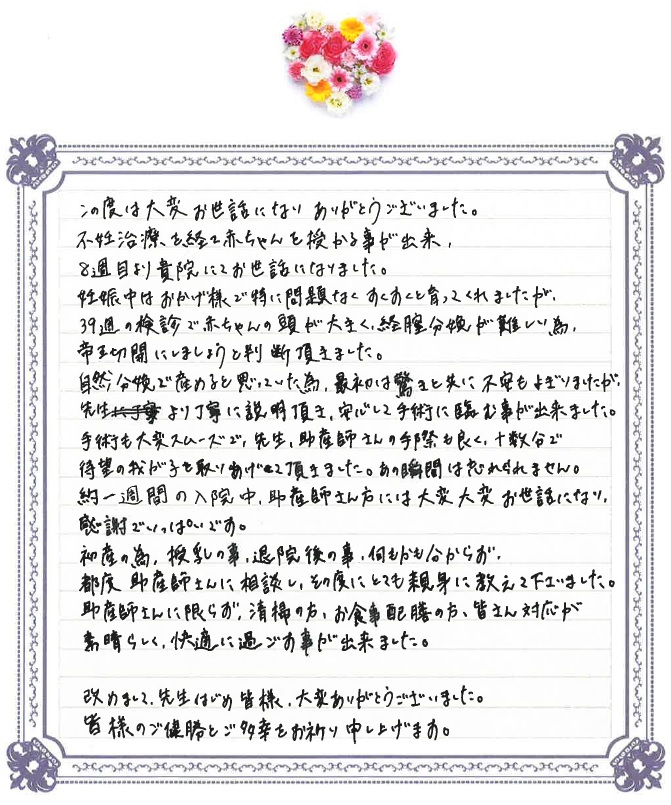 この度は大変お世話になり ありがとうございました。
不妊治療を経て赤ちゃんを授かる事が出来、
8週目より貴院にてお世話になりました。
妊娠中はおかげ様で特に問題なくすくすくと育ってくれましたが、
39週の検診で赤ちゃんの頭が大きく、経膣分娩が難しい為、
帝王切開にしましょうと判断頂きました。
自然分娩で産めると思っていた為、最初は驚きと共に不安もよぎりましたが、
先生より丁寧に説明頂き、安心して手術に臨む事が出来ました。
手術も大変スムーズで、先生、助産師さんの手際も良く、十数分で
待望の我が子を取りあげて頂きました。あの瞬間は忘れられません。
約一週間の入院中、助産師さん方には大変大変お世話になり、
感謝でいっぱいです。
初産の為、授乳の事、退院後の事、何もかも分からず、
都度 助産師さんに相談し、その度にとても親身に教えて下さいました。
助産師さんに限らず、清掃の方、お食事配膳の方、皆さん対応が
素晴らしく、快適に過ごす事が出来ました。
改めまして、先生はじめ皆様、大変ありがとうございました。
皆様のご健勝とご多幸をお祈り申し上げます。